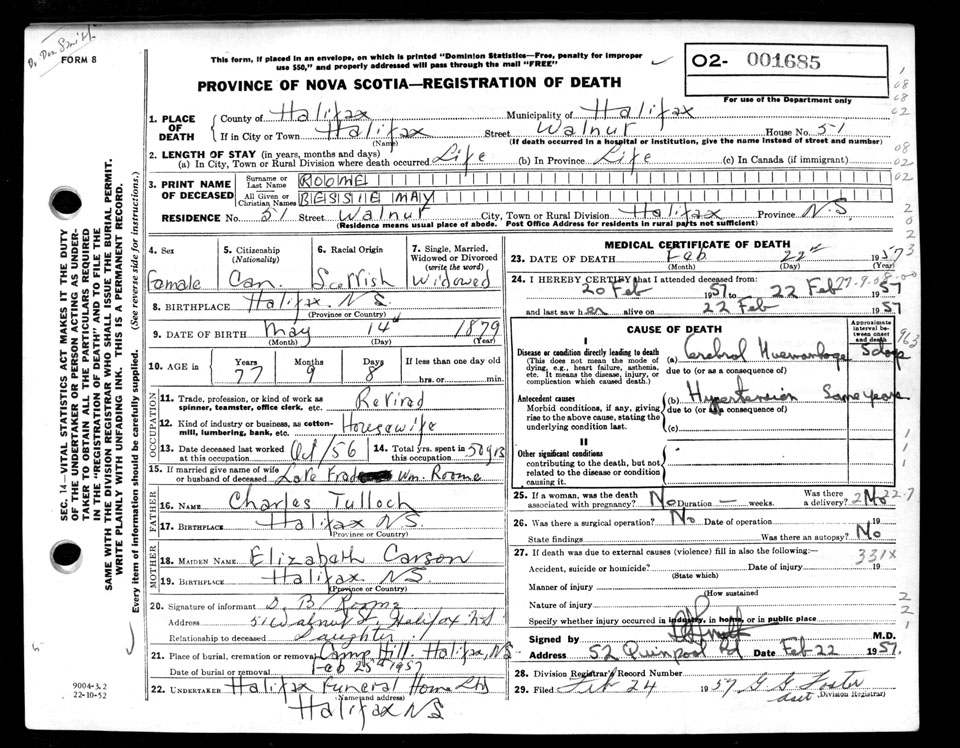 Dr Don Smith
FORM 8
This form, if placed in an envelope, on which is printed "Dominion Statistics—Free, penalty for improper
use $50," and properly addressed will pass through the mail "FREE"
PROVINCE OF NOVA SCOTIA—REGISTRATION OF DEATH
02- 001685
For use of the Department only
1. PLACE OF DEATH
County of Halifax Municipality of Halifax
If in City or Town Halifax Street Walnut House No. 51
(Name) (If death occurred in a hospital or institution, give the name instead of street and number)
2. LENGTH OF STAY (in years, months and days)
(a) In City, Town or Rural Division where death occurred Life (b) In Province Life (c) In Canada (if immigrant)
3. PRINT NAME OF DECEASED
Surname or Last Name ROOME
All Given or Christian Names BESSIE MAY
RESIDENCE No. 51 Street Walnut City, Town or Rural Division Halifax Province N.S
(Residence means usual place of abode. Post Office Address for residents in rural parts not sufficient)
4. Sex Female
5. Citizenship (Nationality) Can.
6. Racial Origin Scottish
7. Single, Married, Widowed or Divorced (write the word) Widowed
8. BIRTHPLACE Halifax. NS.
(Province or Country)
9. DATE OF BIRTH May 14 1879
(Month) (Day) (Year)
10. AGE in Years 77 Months 9 Days 8 If less than one day old
hrs. or min.
OCCUPATION
11. Trade, profession, or kind of work as spinner, teamster, office clerk, etc. Retired
12. Kind of industry or business, as cotton-mill, lumbering, bank, etc. Housewife
13. Date deceased last worked at this occupation Oct/56 14. Total yrs. spent in this occupation
15. If married give name of wife or husband of deceased Late Wm. Roome
FATHER
16. NAME Charles Tulloch
17. BIRTHPLACE Halifax NS.
(Province or Country)
MOTHER
18. MAIDEN NAME Elizabeth Carson
19. BIRTHPLACE Halifax NS
(Province or Country)
20. Signature of informant D. B. Roome
Address 51 Walnut St, Halifax NS
Relationship to deceased Daughter
21. Place of burial, cremation or removal Camp Hill. Halifax, NS
Date of burial or removal Feb 25th 1957
22. UNDERTAKER Halifax Funeral Home Ltd
(Name and address)
Halifax NS
MEDICAL CERTIFICATE OF DEATH
23. DATE OF DEATH Feb 22nd 1957
(Month) (Day) (Year)
24. I HEREBY CERTIFY that I attended deceased from:
20 Feb 1957 to 22 Feb 1957
and last saw her alive on 22 Feb 1957
CAUSE OF DEATH
Approximate interval between onset and death
I
Disease or condition directly leading to death (a) Cerebral Haemorrhage 3 days
(This does not mean the mode of dying, e.g., heart failure, asthenia, etc. It means the disease, injury, or complication which caused death.)
due to (or as a consequence of)
Antecedent causes (b) Hypertension Some years
Morbid conditions, if any, giving rise to the above cause, stating the underlying condition last.
due to (or as a consequence of)
(c)
II
Other significant conditions
contributing to the death, but not related to the disease or condition causing it.
25. If a woman, was the death associated with pregnancy? No Duration — weeks. Was there a delivery? No
26. Was there a surgical operation? No Date of operation 19
State findings Was there an autopsy? No
27. If death was due to external causes (violence) fill in also the following:— 331X
Accident, suicide or homicide? Date of injury 19
(State which)
Manner of injury
(How sustained
Nature of injury
Specify whether injury occurred in industry, in home, or in public place
Signed by M.D.
Address 52 Quinpool Rd Date Feb 22 1957.
28. Division Registrar's Record Number
29. Filed Feb 24 1957 G G Foster
(Division Registrar)
SEC. 14—VITAL STATISTICS ACT MAKES IT THE DUTY
OF THE UNDERTAKER OR PERSON ACTING AS UNDER-
TAKER TO OBTAIN ALL THE PARTICULARS REQUIRED
IN THE "REGISTRATION OF DEATH" AND TO FILE THE
SAME WITH THE DIVISION REGISTRAR WHO SHALL ISSUE THE BURIAL PERMIT.
WRITE PLAINLY WITH UNFADING INK. THIS IS A PERMANENT RECORD.
Every item of information should be carefully supplied. (See reverse side for instructions.)
9004-3.2
22-10-52